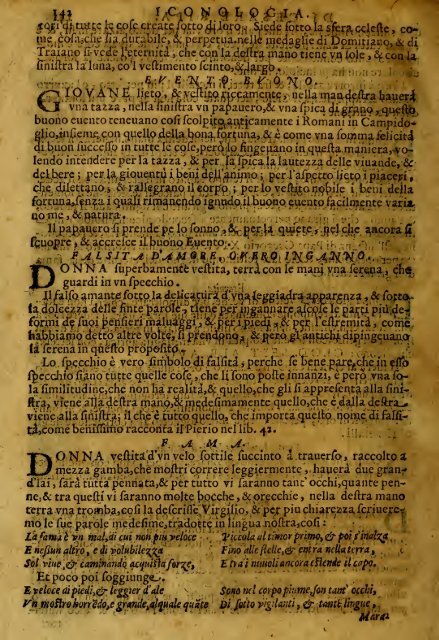 142 ICONOLOGIA.
cosi di tutte le cose create sotto di loro. Siede sotto la sfera celeste, co-
me cosa, che sia durabile, & perpetua. nelle medaglie di Domitiano, & di
Traiano si vede l'eternità, che con la destra mano tiene vn sole, & con la
sinistra la luna, co'l vestimento scinto, & largo.
EVENTO BVONO.
GIOVANE lieto, & vestito riccamente, nella man destra hauerà
vna tazza, nella sinistra vn papauero, & vna spica di grano, questo
buono euento teneuano così scolpito anticamente i Romani in Campido-
glio, insieme con quello della bona fortuna, & è come vna somma felicità
di buon successo in tutte le cose, però lo fingeuano in questa maniera, vo-
lendo intendere per la tazza, & per la spica la lautezza delle viuande, &
del bere; per la giouentù i beni dell'animo; per l'aspetto lieto i piaceri,
che dilettano, & rallegrano il corpo; per lo vestito nobile i beni della
fortuna, senza i quali rimanendo ignudo il buono euento facilmente varia
nome, & natura.
Il papauero si prende pe lo sonno, & per la quiete, nel che ancora si
scuopre, & accresce il buono Euento.
FALSITA D'AMORE, OVERO INGANNO.
DONNA superbamente vestita, terrà con le mani vna serena, che
guardi in vn specchio.
Il falso amante sotto la delicatura d'vna leggiadra apparenza, & sotto
la dolcezza delle finte parole, tiene per ingannare ascose le parti più de-
formi de suoi pensieri maluaggi, & per i piedi, & per l'estremità, come
habbiamo detto altre volte, si prendono, & però gli antichi dipingeuano
la serena in questo proposito.
Lo specchio è vero simbolo di falsità, perche se bene pare, che in esso
specchio siano tutte quelle cose, che li sono poste innanzi, è però vna so-
la similitudine, che non ha realità, & quello, che gli si appresenta alla sini-
stra, viene alla destra mano, & medesimamente quello, che è dalla destra
viene alla sinistra; il che è tutto quello, che importa questo nome di falsi-
tà, come benissimo racconta il Pierio nel lib. 42.
FAMA.
DONNA vestita d'vn velo sottile succinto à trauerso, raccolto a
mezza gamba, che mostri correre leggiermente, hauerà due gran-
d'ali, sarà tutta pennata, & per tutto vi saranno tant'occhi, quante pen-
ne, & tra questi vi saranno molte bocche, & orecchie, nella destra mano
terrà vna tromba, così la descrisse Virgilio, & per piu chiarezza scriuere-
mo le sue parole medesime, tradotte in lingua nostra, così:
La fama è vn mal, di cui non più veloce
E nessun altro, e di volubilezza
Sol viue, & caminando acquista forze,
Piccola al timor primo, & poi s'inalza
Fino alle stelle, & entra nella terra,
E tra i nuuoli ancora estende il capo.
Et poco poi soggiunge.
E veloce di piedi, & leggier d'ale
Vn mostro horrēdo, e grande, alquale quāte
Sono nel corpo piume, son tant'occhi,
Di sotto vigilanti, & tante lingue,
Mara-